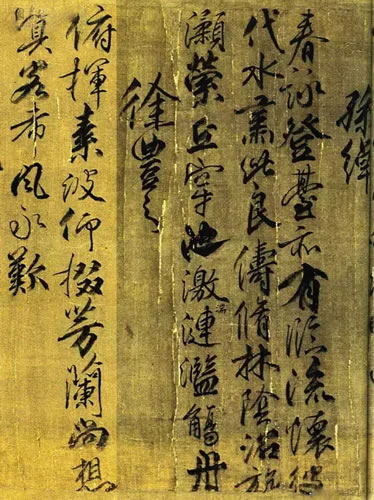 孫綽
春詠登臺亦有臨流懷彼
伐水肅此良儔脩林陰沼旋
瀨榮丘穿池激湍漣濫觴舟
徐豊之
俯揮素波仰掇芳蘭尚想
客希風永歎